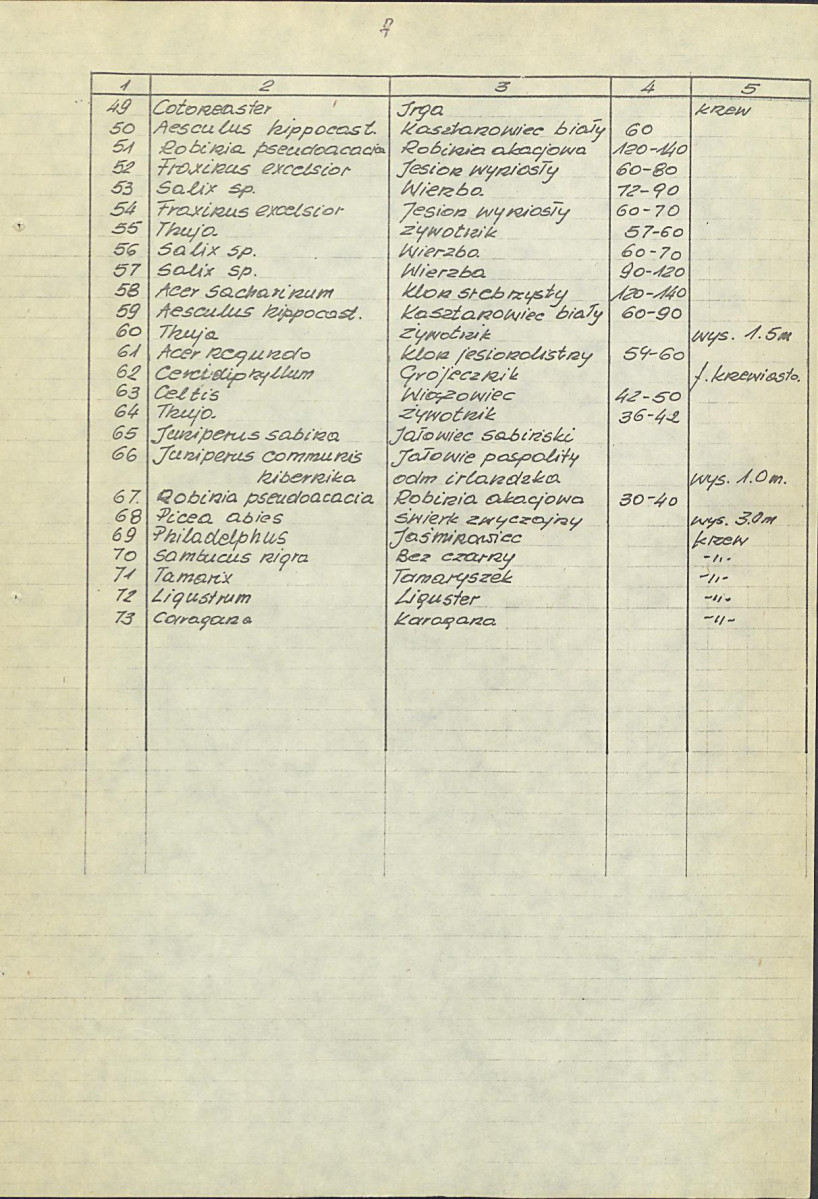 7
1 2 3 4 5
49 Cotoneaster Irga krzew
50 Aesculus hippocast. Kasztanowiec biały 60
51 Robinia pseudoacacia Robinia akacjowa 120-140
52 Fraxinus excelsior Jesion wyniosły 60-80
53 Salix sp. Wierzba 72-90
54 Fraxinus excelsior Jesion wyniosły 60-70
55 Thuja żywotnik 57-60
56 Salix sp. Wierzba 60-70
57 Salix sp. Wierzba 90-120
58 Acer sacharinum klon srebrzysty 120-140
59 Aesculus hippocast. Kasztanowiec biały 60-90
60 Thuja żywotnik wys. 1.5m
61 Acer negundo klon jesionolistny 54-60
62 Cercidiphyllum Grojecznik f. krzewiasta.
63 Celtis Wiązowiec 42-50
64 Thuja żywotnik 36-42
65 Juniperus sabina Jałowiec sabiński
66 Juniperus communis Jałowie pospolity
hibernika odm irlandzka wys. 1.0m.
67. Robinia pseudoacacia Robinia akacjowa 30-40
68 Picea abies świerk zwyczajny wys. 3.0m
69 Philadelphus Jaśminowiec krzew
70 Sambucus nigra Bez czarny -"-
71 Tamarix Tamaryszek -"-
72 Ligustrum Liguster -"-
73 Carragana Karagana -"-